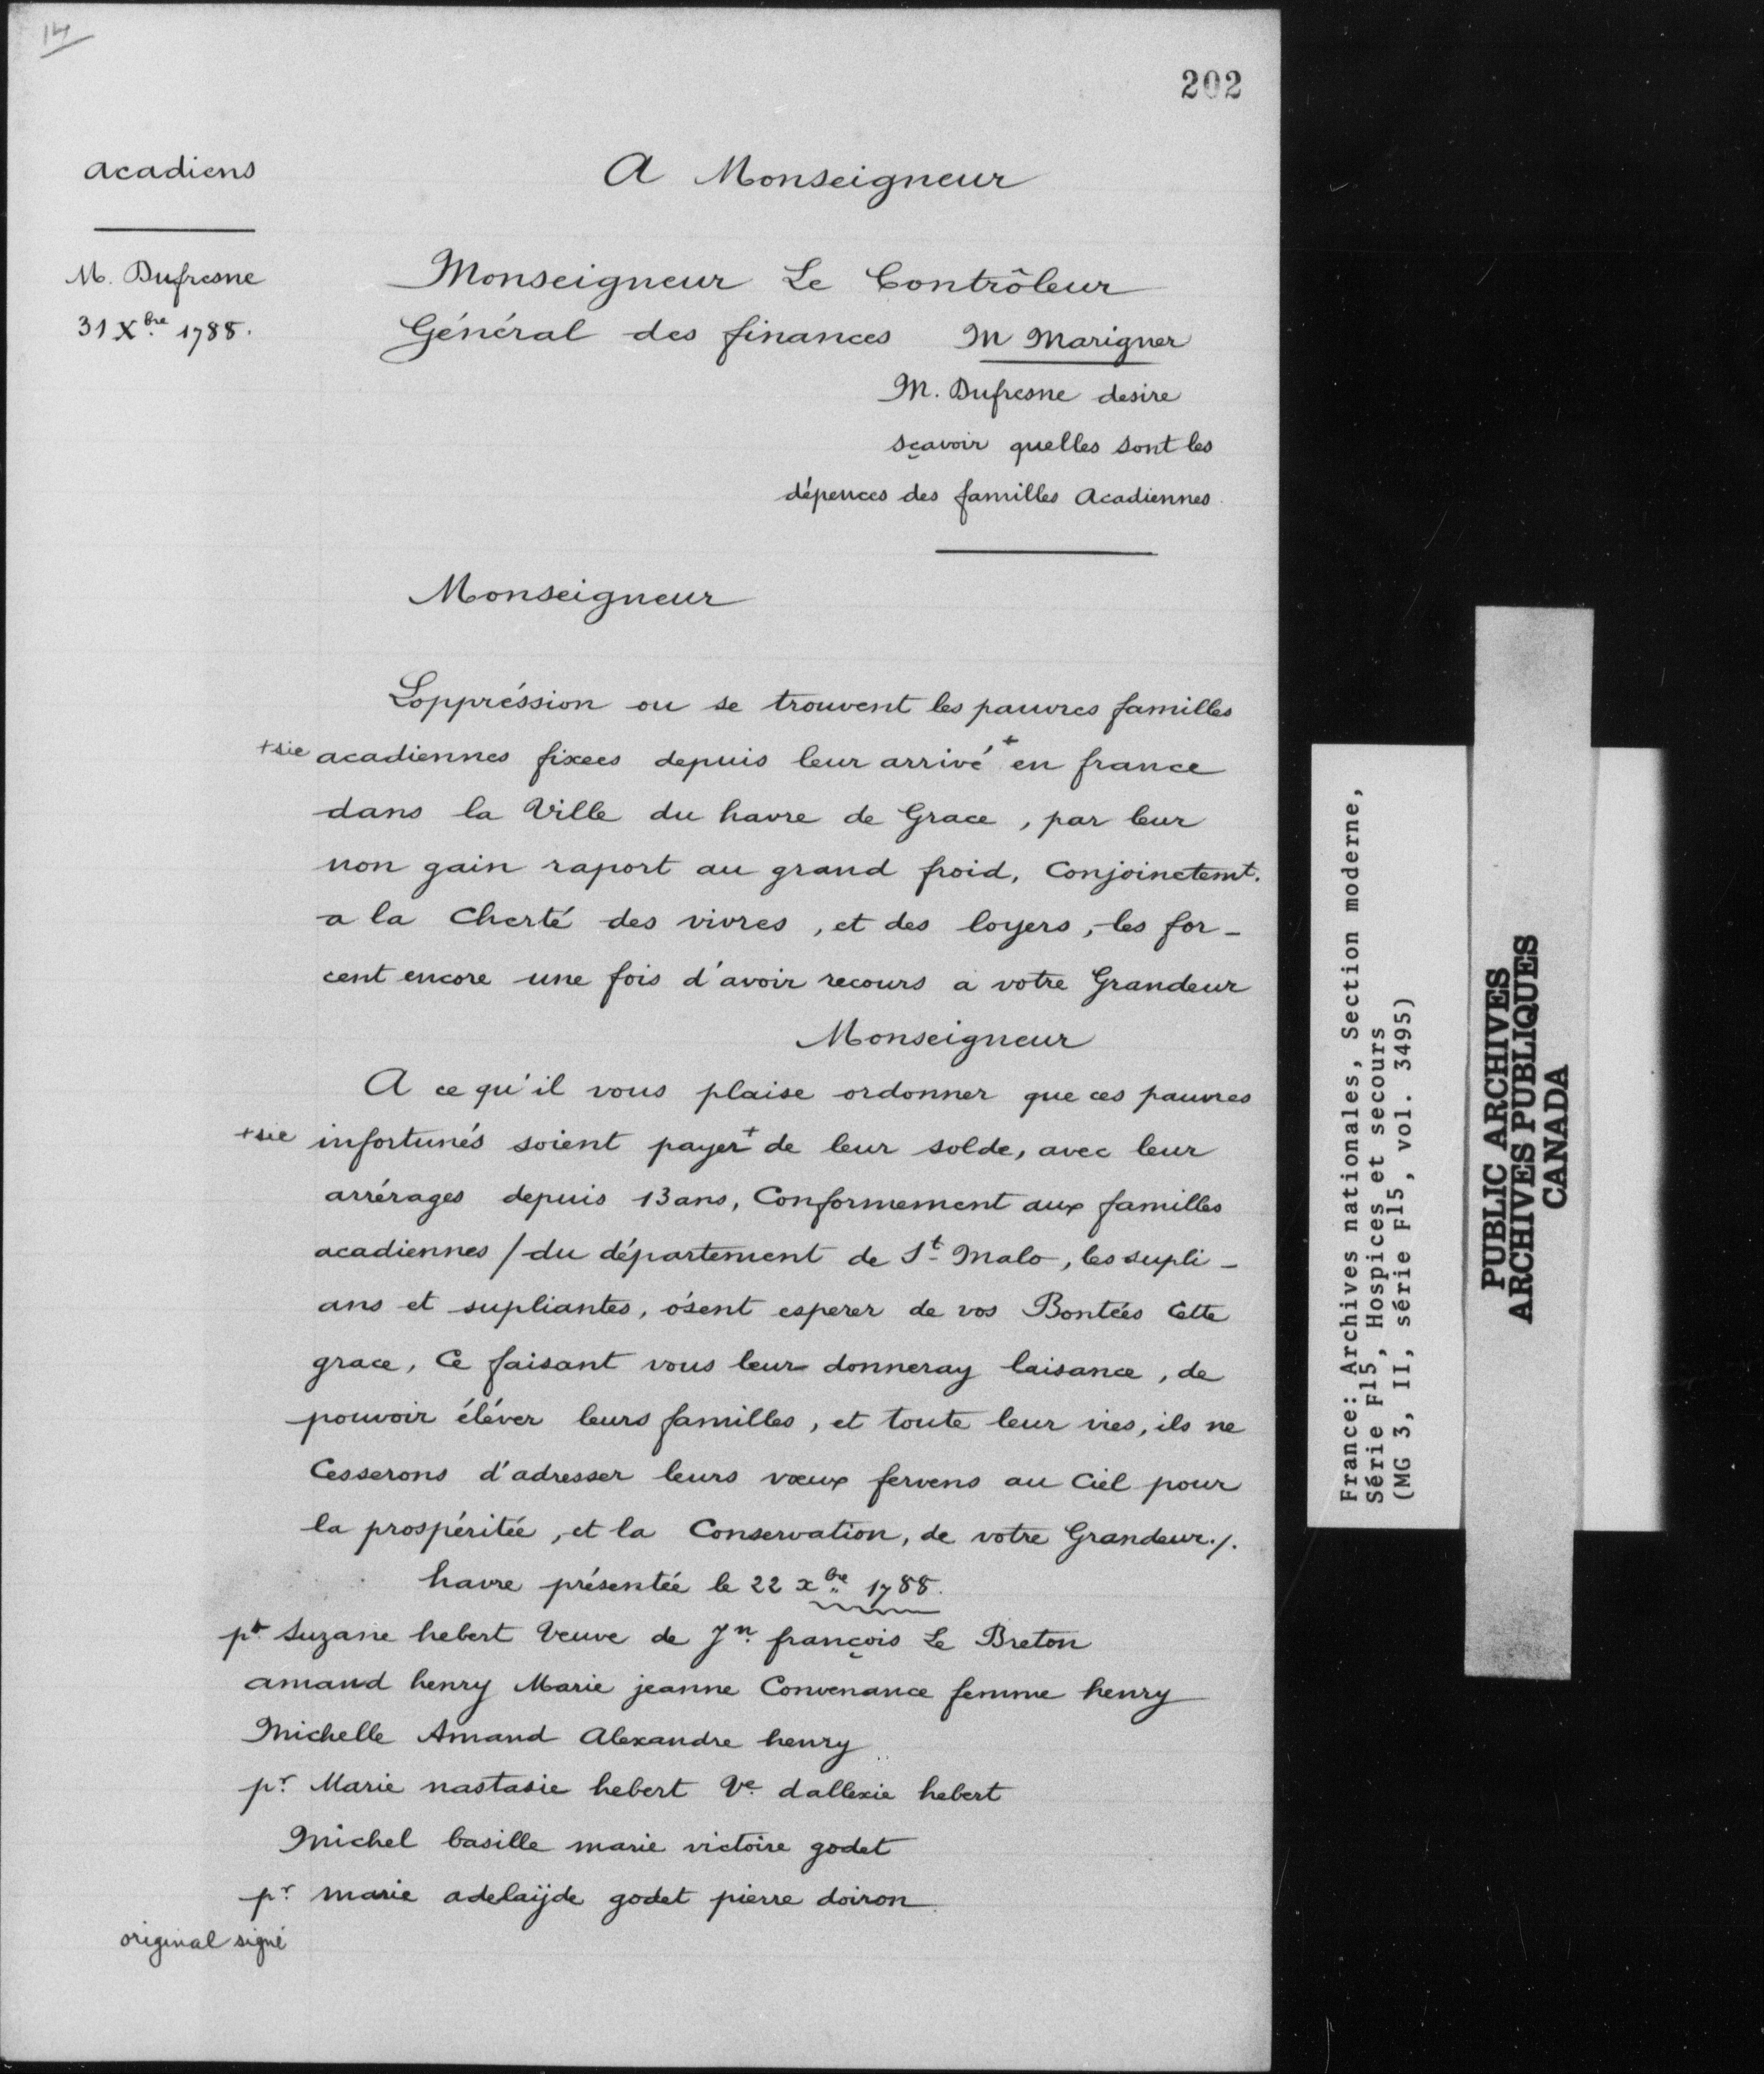 14
202
acadiens
A Monseigneur
M. Dufresne
31 Xbre 1788.
Monseigneur Le Contrôleur
Général des finances M Marigner
M. Dufresne desire
sçavoir quelles sont les
dépences des familles Acadiennes.
Monseigneur
Loppréssion ou se trouvent les pauvres familles
+sic acadiennes fixees depuis leur arrivé + en france
dans la Ville du havre de Grace, par leur
non gain raport au grand froid, Conjoinctemt.
a la Cherté des vivres, et des loyers, les for-
cent encore une fois d'avoir recours a votre Grandeur
Monseigneur
A ce qu'il vous plaise ordonner que ces pauvres
+sic infortunés soient payer + de leur solde, avec leur
arrérages depuis 13 ans, Conformement aux familles
acadiennes / du département de St Malo, les supli-
ans et supliantes, ósent esperer de vos Bontées Cette
grace, Ce faisant vous leur donneray laisance, de
pouvoir éléver leurs familles, et toute leur vies, ils ne
Cesserons d'adresser leurs vœux fervens au Ciel pour
la prospéritée, et la Conservation, de votre Grandeur./.
havre présentée le 22 xbre 1788.
pr Suzane hebert Veuve de Jn. françois Le Breton
amand henry Marie jeanne Convenance femme henry
Michelle Amand Alexandre henry
pr Marie nastasie hebert Ve dallexie hebert
Michel basille marie victoire godet
pr marie adelaÿde godet pierre doiron
original signé
France: Archives nationales, Section moderne,
Série F15, Hospices et secours
(MG 3, II, série F15, vol. 3495)
PUBLIC ARCHIVES
ARCHIVES PUBLIQUES
CANADA